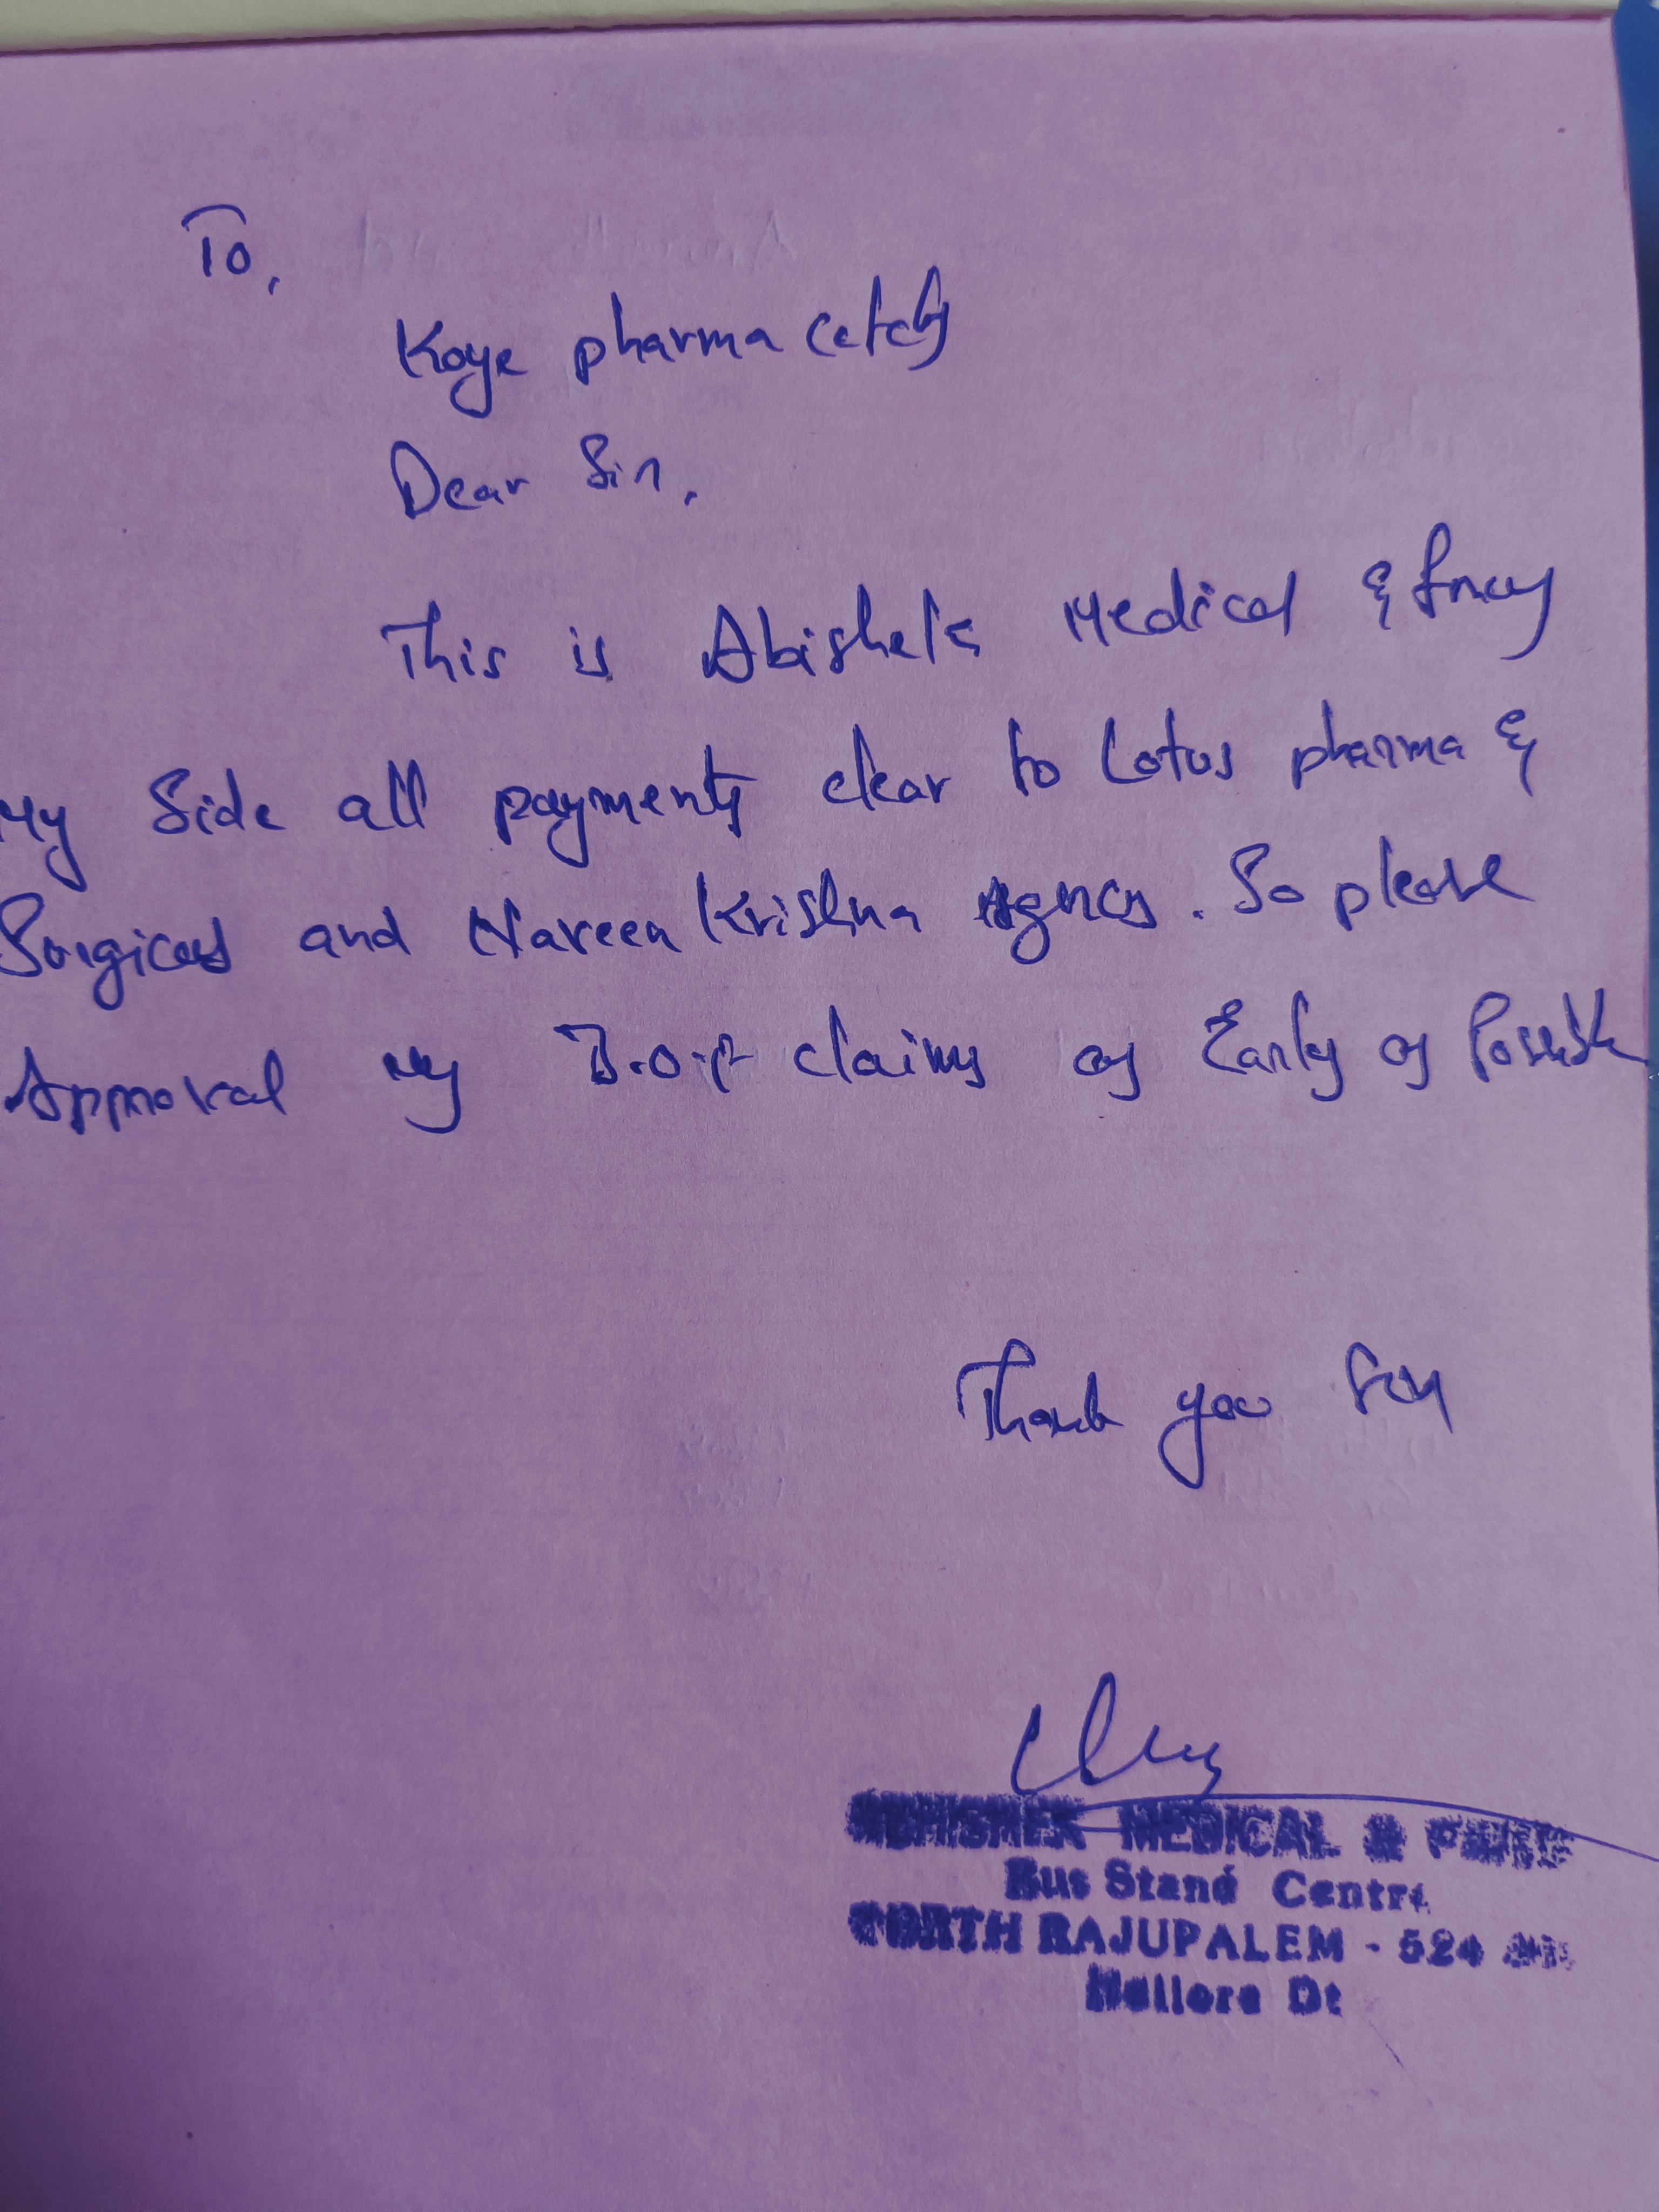 To,
Koye pharma
Dear Sir,
This is Abishek Medical & Fncy
My Side all payments clear to Lotus pharma &
Surgicals and Naveen Krishna Agncy. So please
Approval my claims as Early as Possible
Thank you Sir
ABHISHEK MEDICAL &
Bus Stand Centre
NORTH RAJUPALEM - 524
Nellore Dt